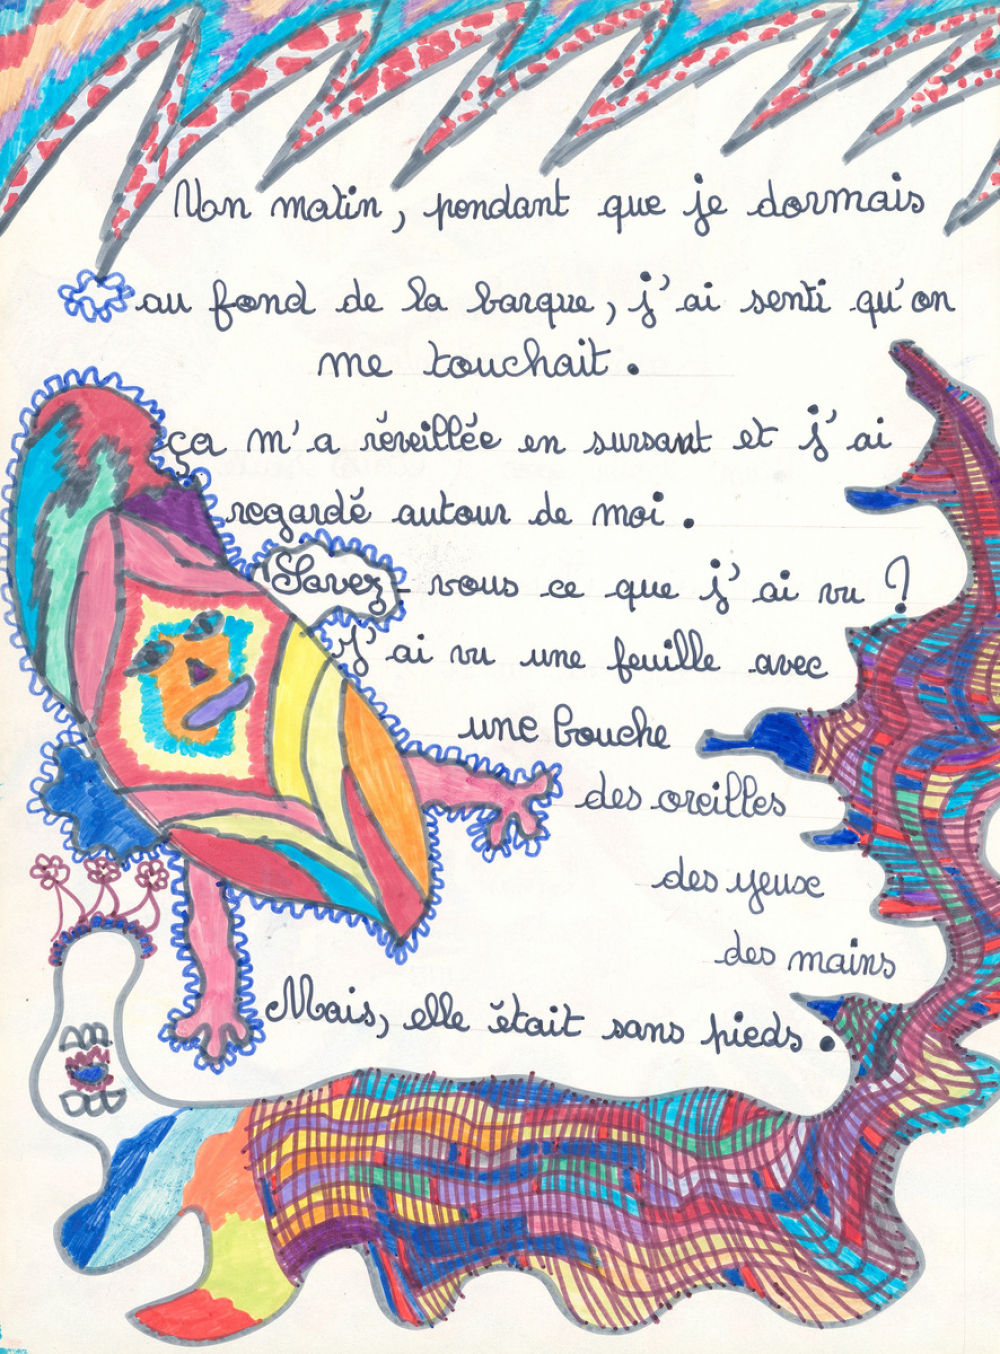 Un matin, pendant que je dormais
au fond de la barque, j'ai senti qu'on
me touchait.
ça m'a réveillée en sursaut et j'ai
regardé autour de moi.
Savez-vous ce que j'ai vu ?
J'ai vu une feuille avec
une bouche
des oreilles
des yeux
des mains
Mais, elle était sans pieds.